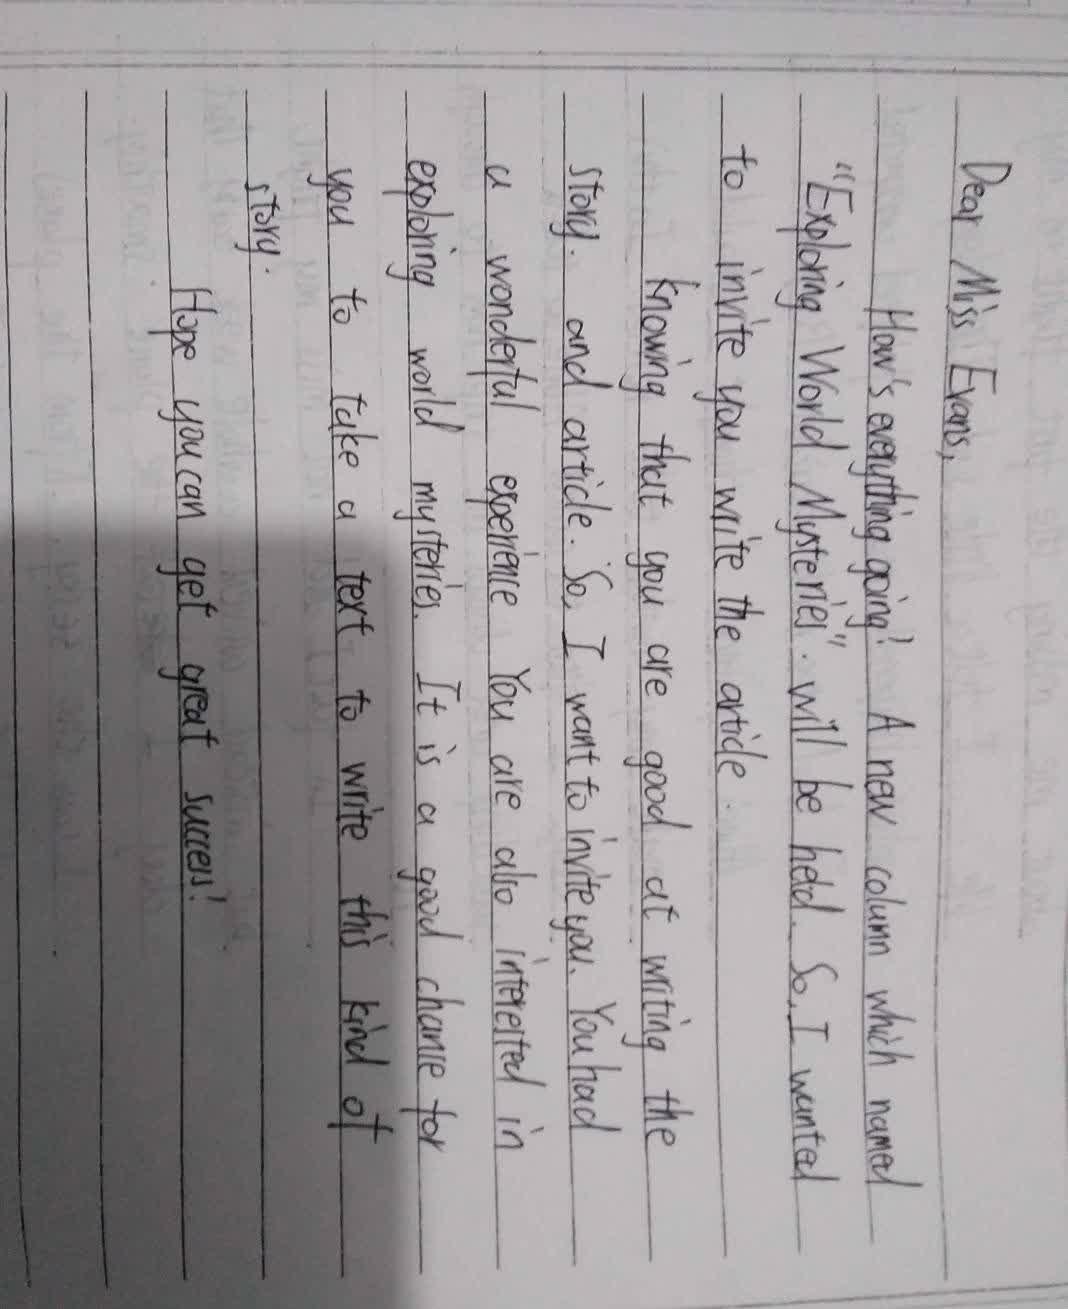 Dear Miss Evans,
How's everything going? A new column which named
"Exploring World Mysteries". will be held. So, I wanted
to invite you write the article.
Knowing that you are good at writing the
story. and article. So, I want to invite you. You had
a wonderful experience. You are also interested in
exploring world mysteries. It is a good chance for
you to take a text to write this kind of
story.
Hope you can get great success!